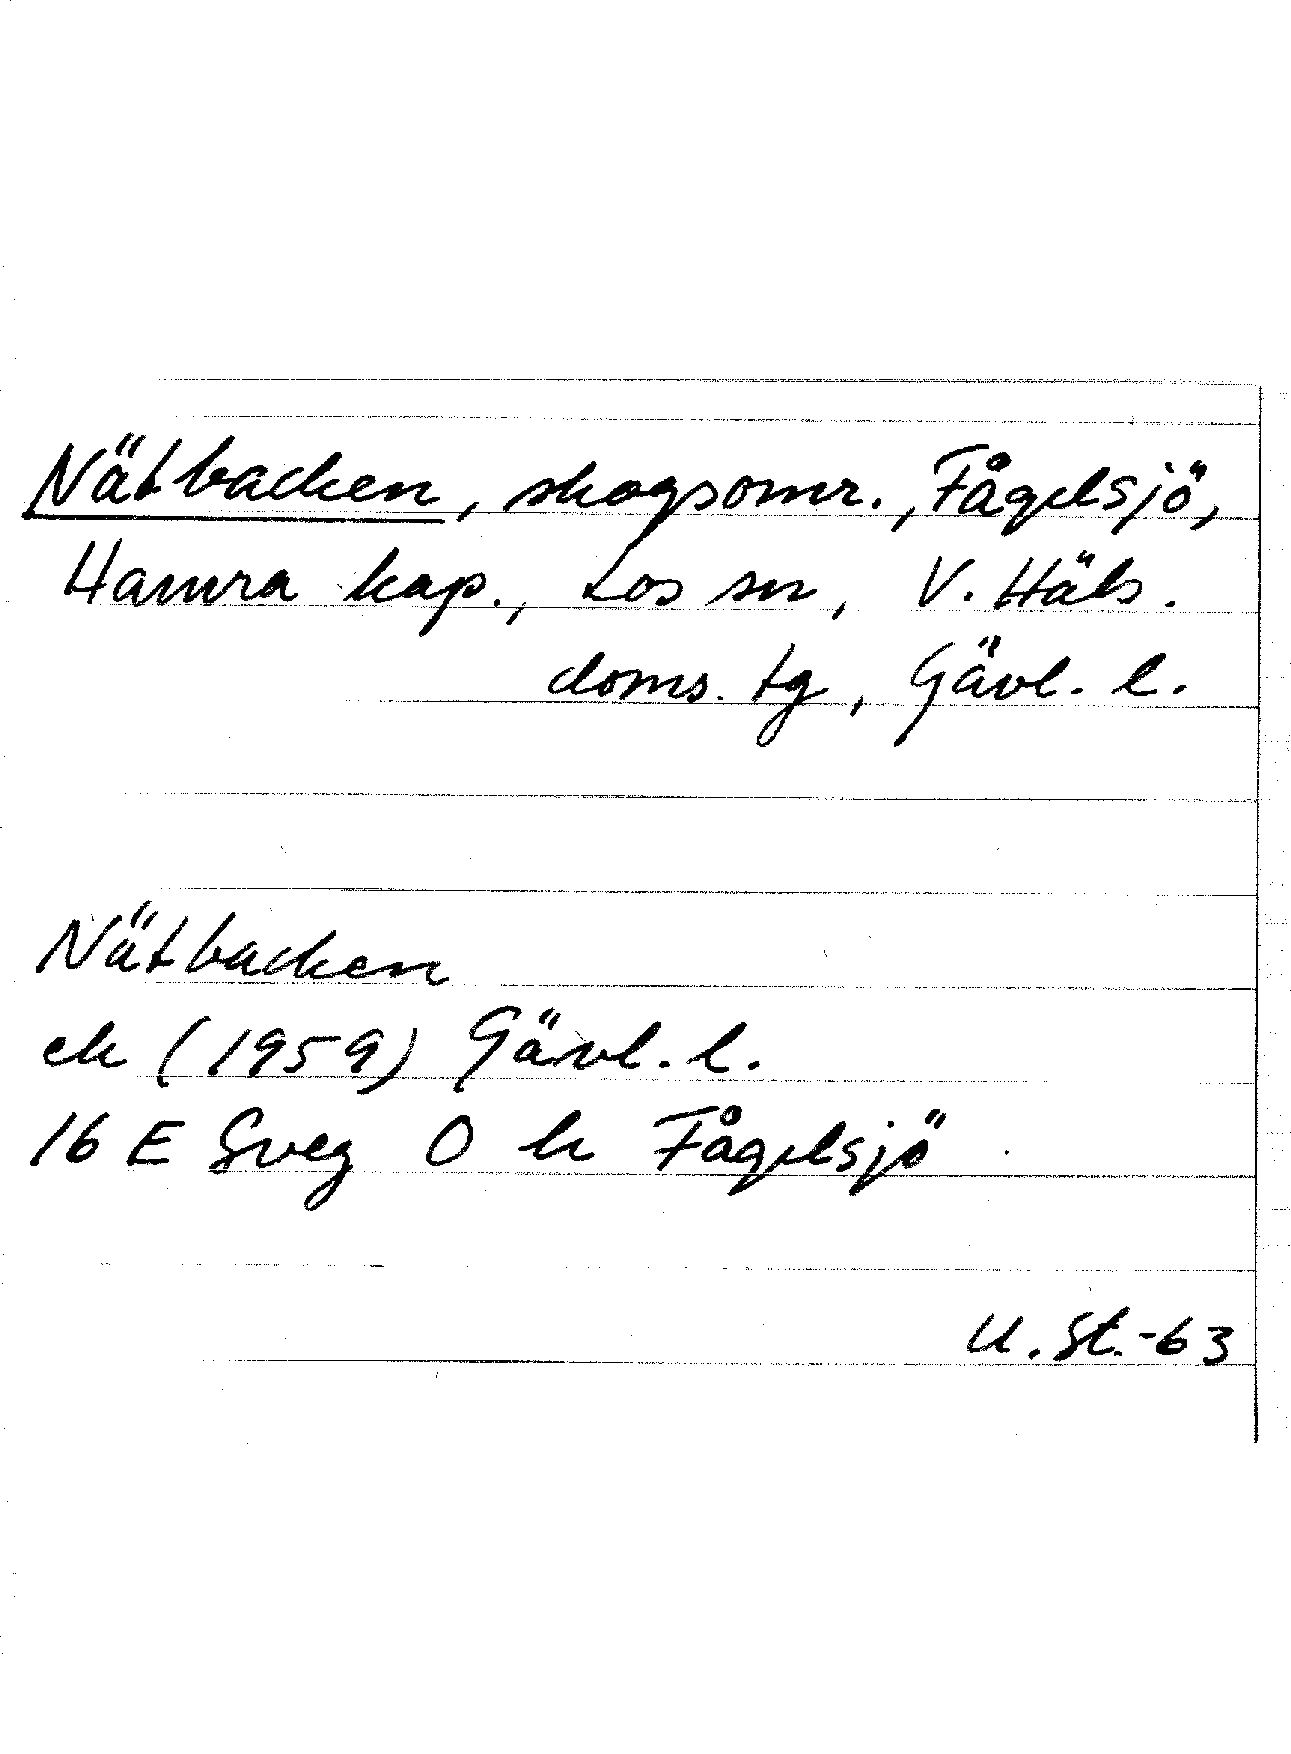 Nätbacken, skogsomr., Fågelsjö,
Hamra kap., Los sn, V. Häls.
doms. tg, Gävl. l.
Nätbacken
ek (1959) Gävl. l.
16 E Sveg O k Fågelsjö
U. St. -63